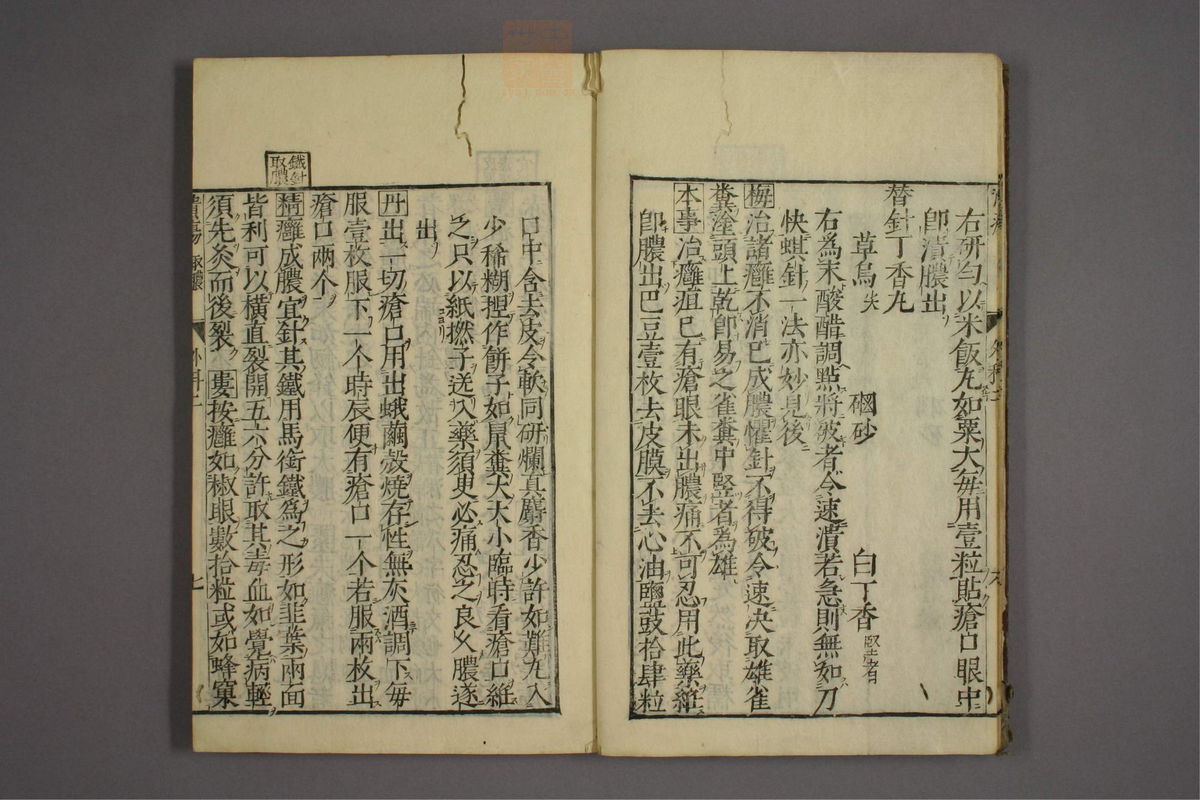 右研勻以米飯丸如粟大每用壹粒貼瘡口眼中
卽潰膿出
替針丁香丸
草烏尖
硇砂
白丁香堅者
右為末酸醋調點將破者令速潰若急則無如刀
快蜞針一法亦妙見後
梅治諸癰不消已成膿懼針不得破令速决取雄雀
糞塗頭上乾卽易之雀糞中竪者為雄
本事治癰疽已有瘡眼未出膿痛不可忍用此藥紝
卽膿出巴豆壹枚去皮膜不去心油鹽豉拾肆粒
口中含去皮令軟同研爛真麝香少許如難丸入
少稀糊捏作餅子如鼠糞大大小臨時看瘡口紝
之只以紙撚子送入藥須臾必痛忍之良久膿遂
出
丹出一切瘡口用出蛾繭殼燒存性無灰酒調下每
服壹枚服下一个時辰便有瘡口一个若服兩枚出
瘡口兩个
鐵針取膿
精癰成膿宜針其鐵用馬銜鐵為之形如韭葉兩面
皆利可以橫直裂開五六分許取其毒血如覺病輕
須先灸而後裂 婁按癰如椒眼數拾粒或如蜂窠
潰瘍 取膿 外科二 七